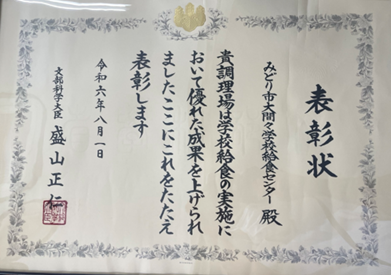 表彰状
みどり市大間々学校給食センター 殿
貴調理場は学校給食の実施に
おいて優れた成果を上げられ
ましたここにこれをたたえ
表彰します
令和六年八月一日
文部科学大臣 盛山正仁